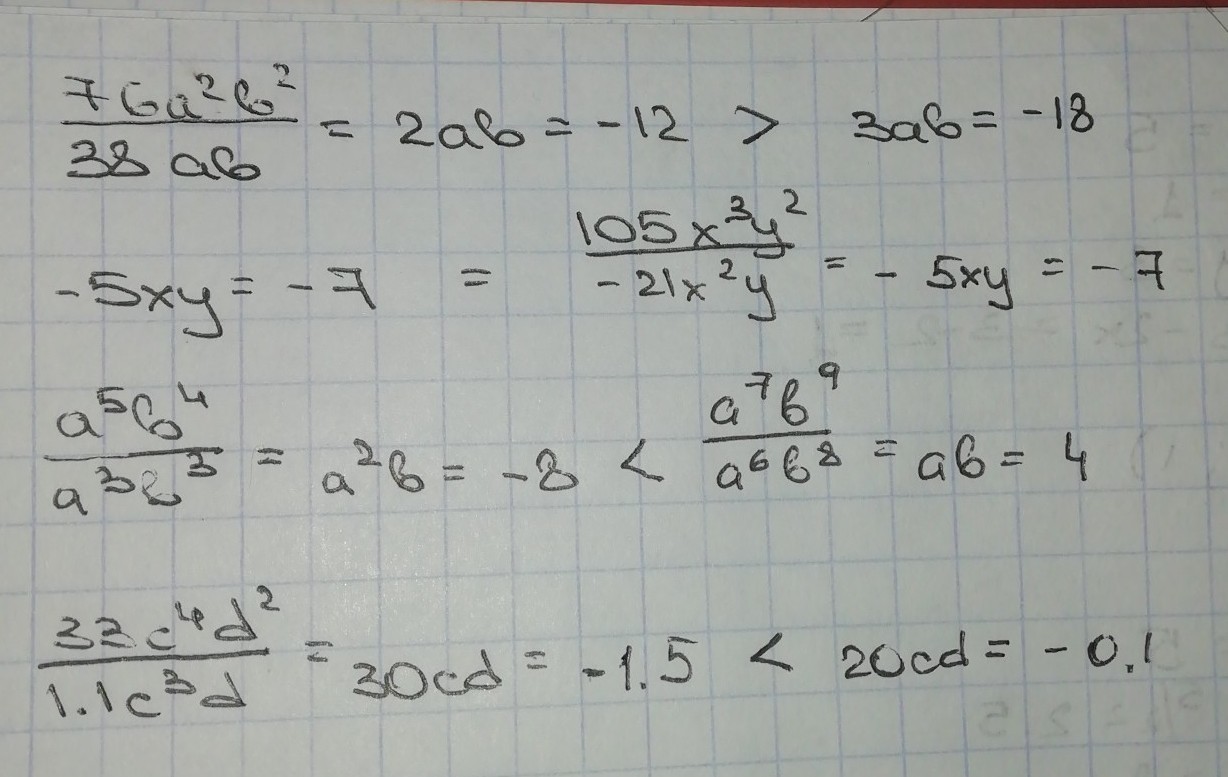 76a²b²/38ab = 2ab = -12 > 3ab = -18
-5xy = -7 = 105x³y²/-21x²y = -5xy = -7
a⁵b⁴/a³b³ = a²b = -8 < a⁷b⁹/a⁶b⁸ = ab = 4
33c⁴d²/1.1c³d = 30cd = -1.5 < 20cd = -0.1